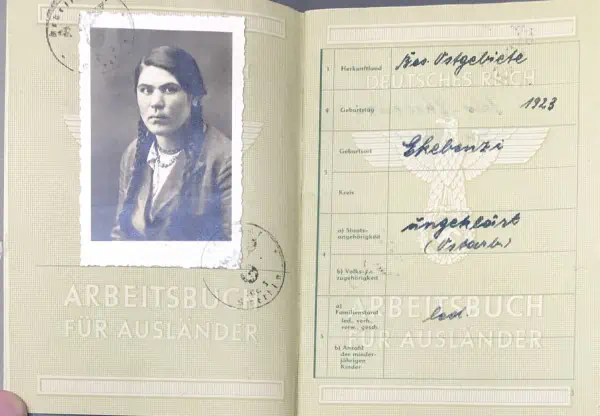 ARBEITSBUCH
FÜR AUSLÄNDER
DEUTSCHES REICH
1 Herkunftsland Bes. Ostgebiete
2 Geburtstag 1923
3 Geburtsort
Kreis
4 a) Staats-
angehörigkeit ungeklärt
(Ostarb)
b) Volks-
zugehörigkeit
5 a)
Familienstand led.
led., verh.,
verw., gesch.
b) Anzahl
der minder-
jährigen
Kinder
ARBEITSBUCH
FÜR AUSLÄNDER